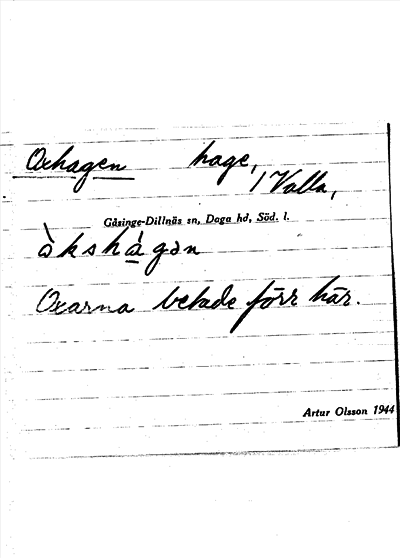 Oxhagen hage,
/ Valla,
Gåsinge-Dillnäs sn, Daga hd, Söd. l.
òkshà̱gən
Oxarna betade förr här.
Artur Olsson 1944